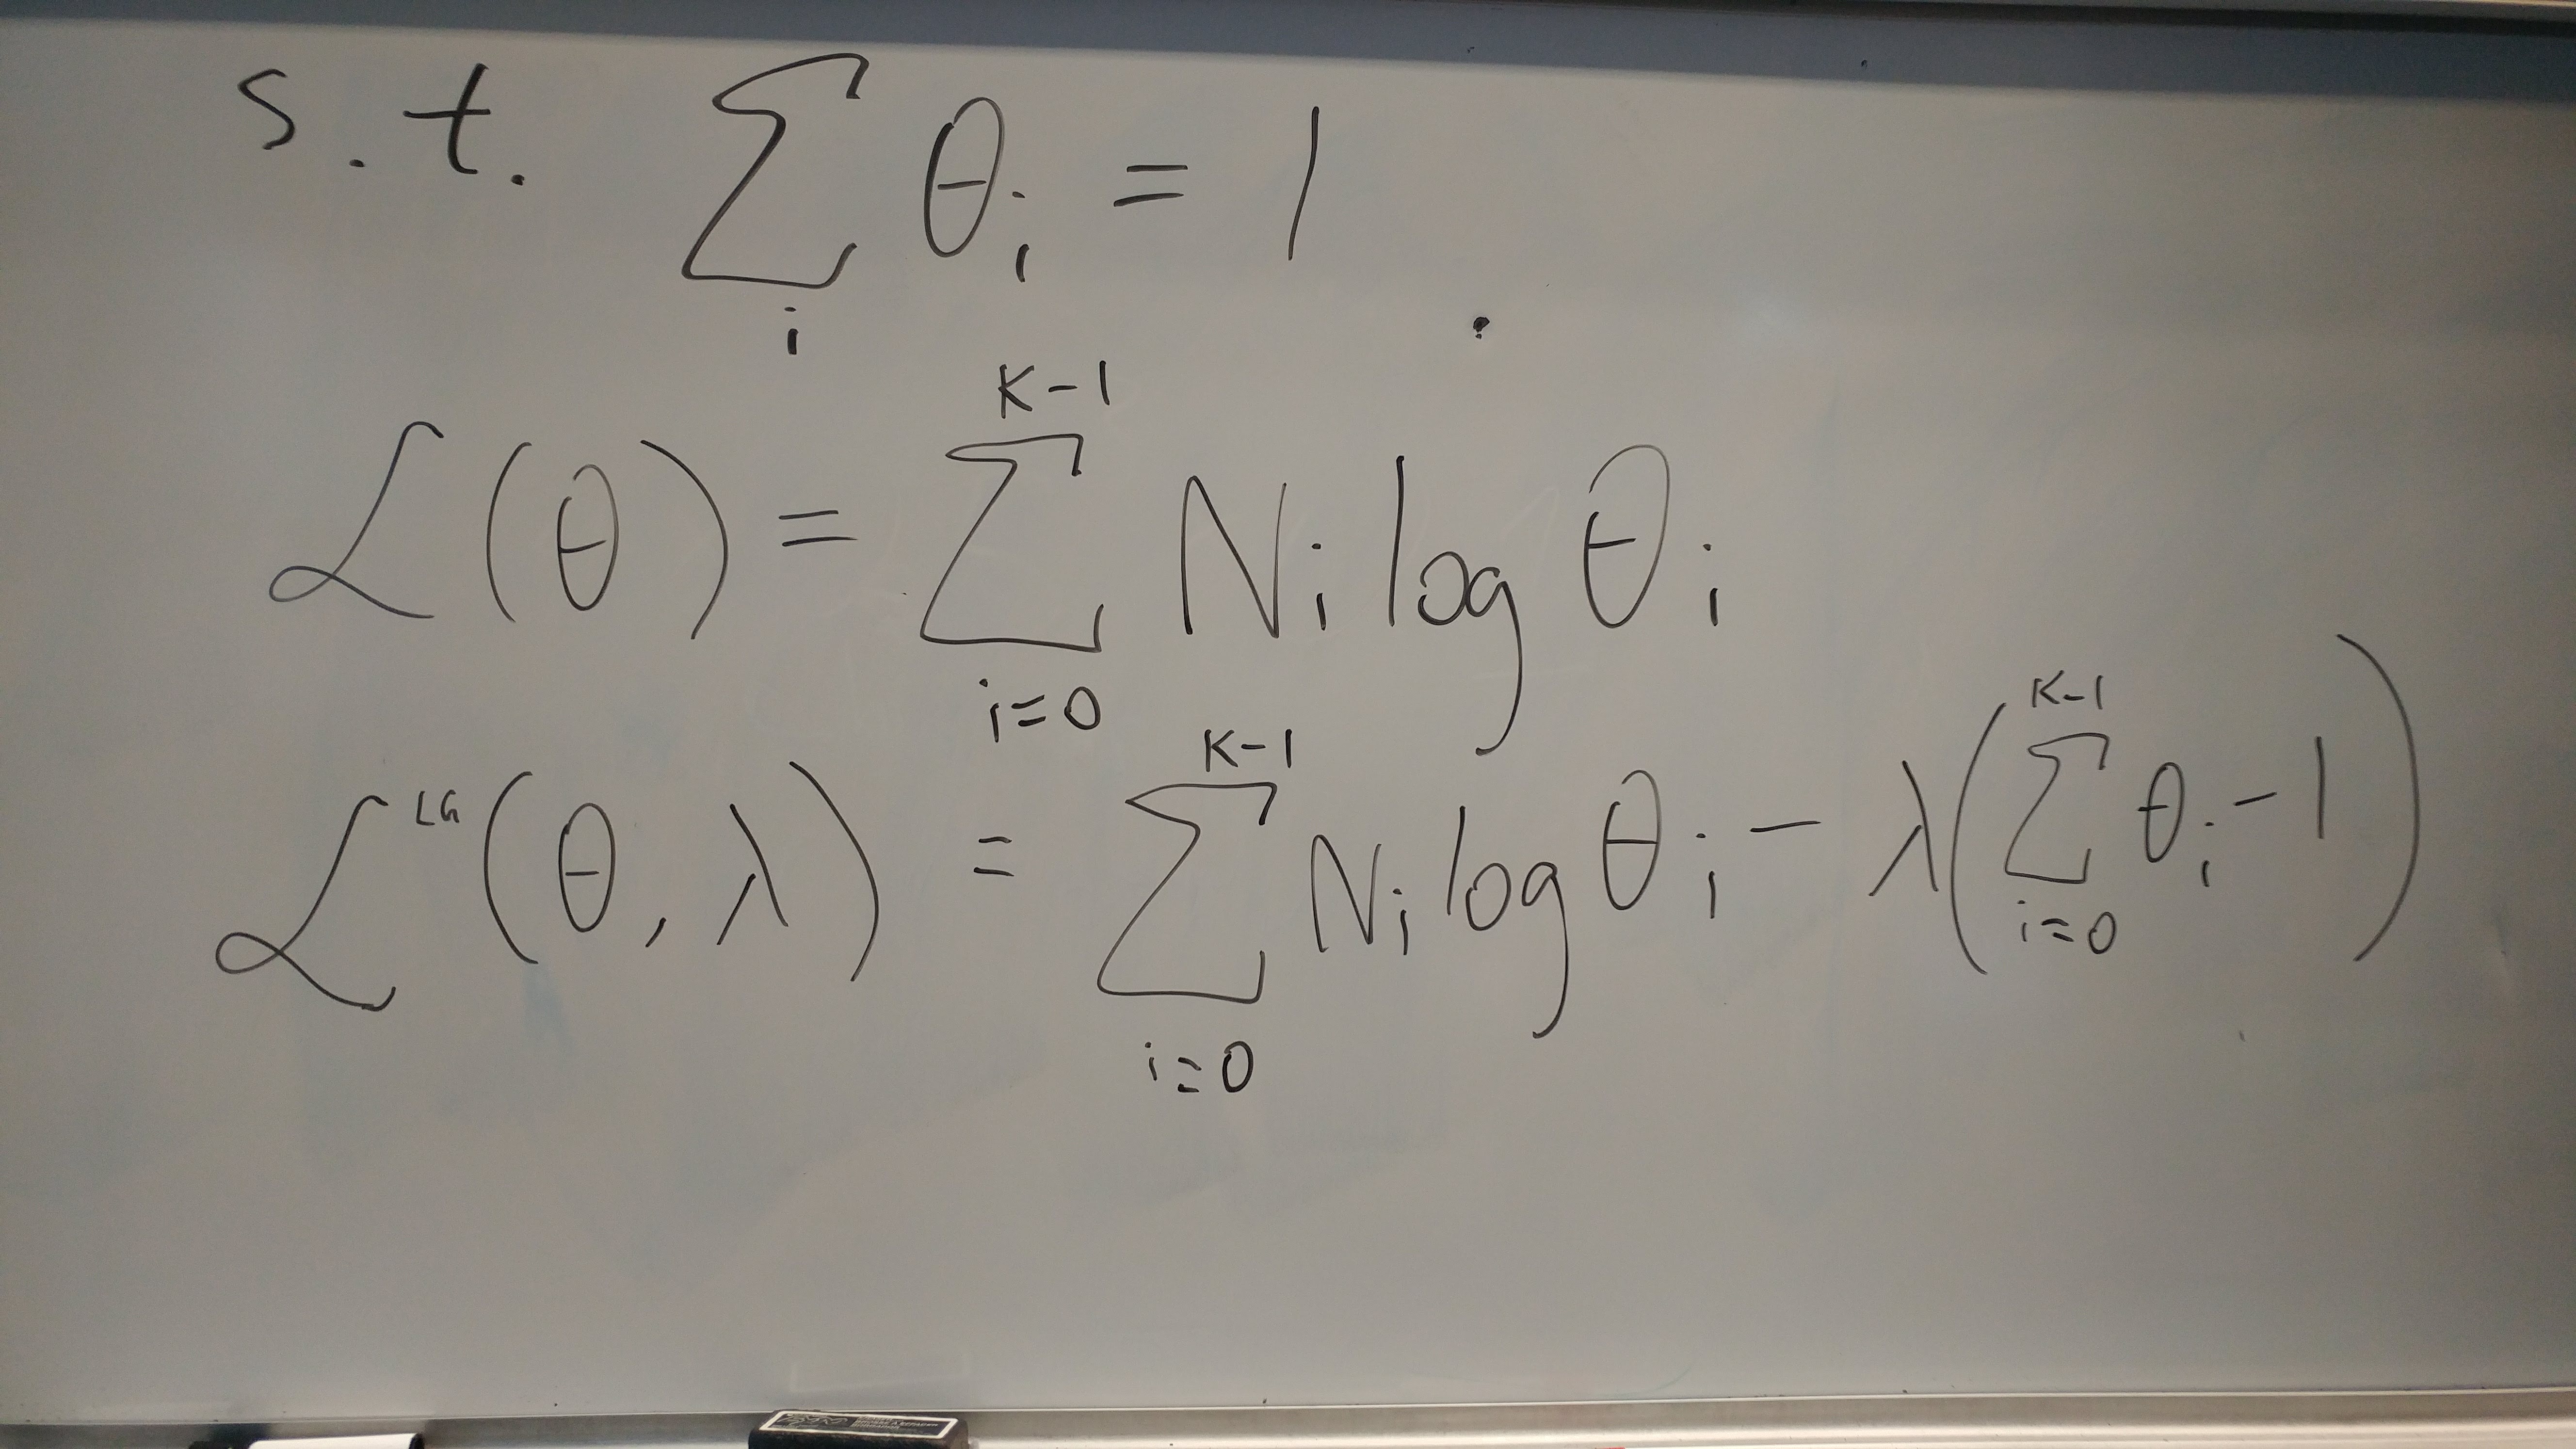 s.t. ∑_i θ_i = 1
ℒ(θ) = ∑_{i=0}^{K-1} N_i log θ_i
ℒ^{LG}(θ, λ) = ∑_{i=0}^{K-1} N_i log θ_i - λ(∑_{i=0}^{K-1} θ_i - 1)